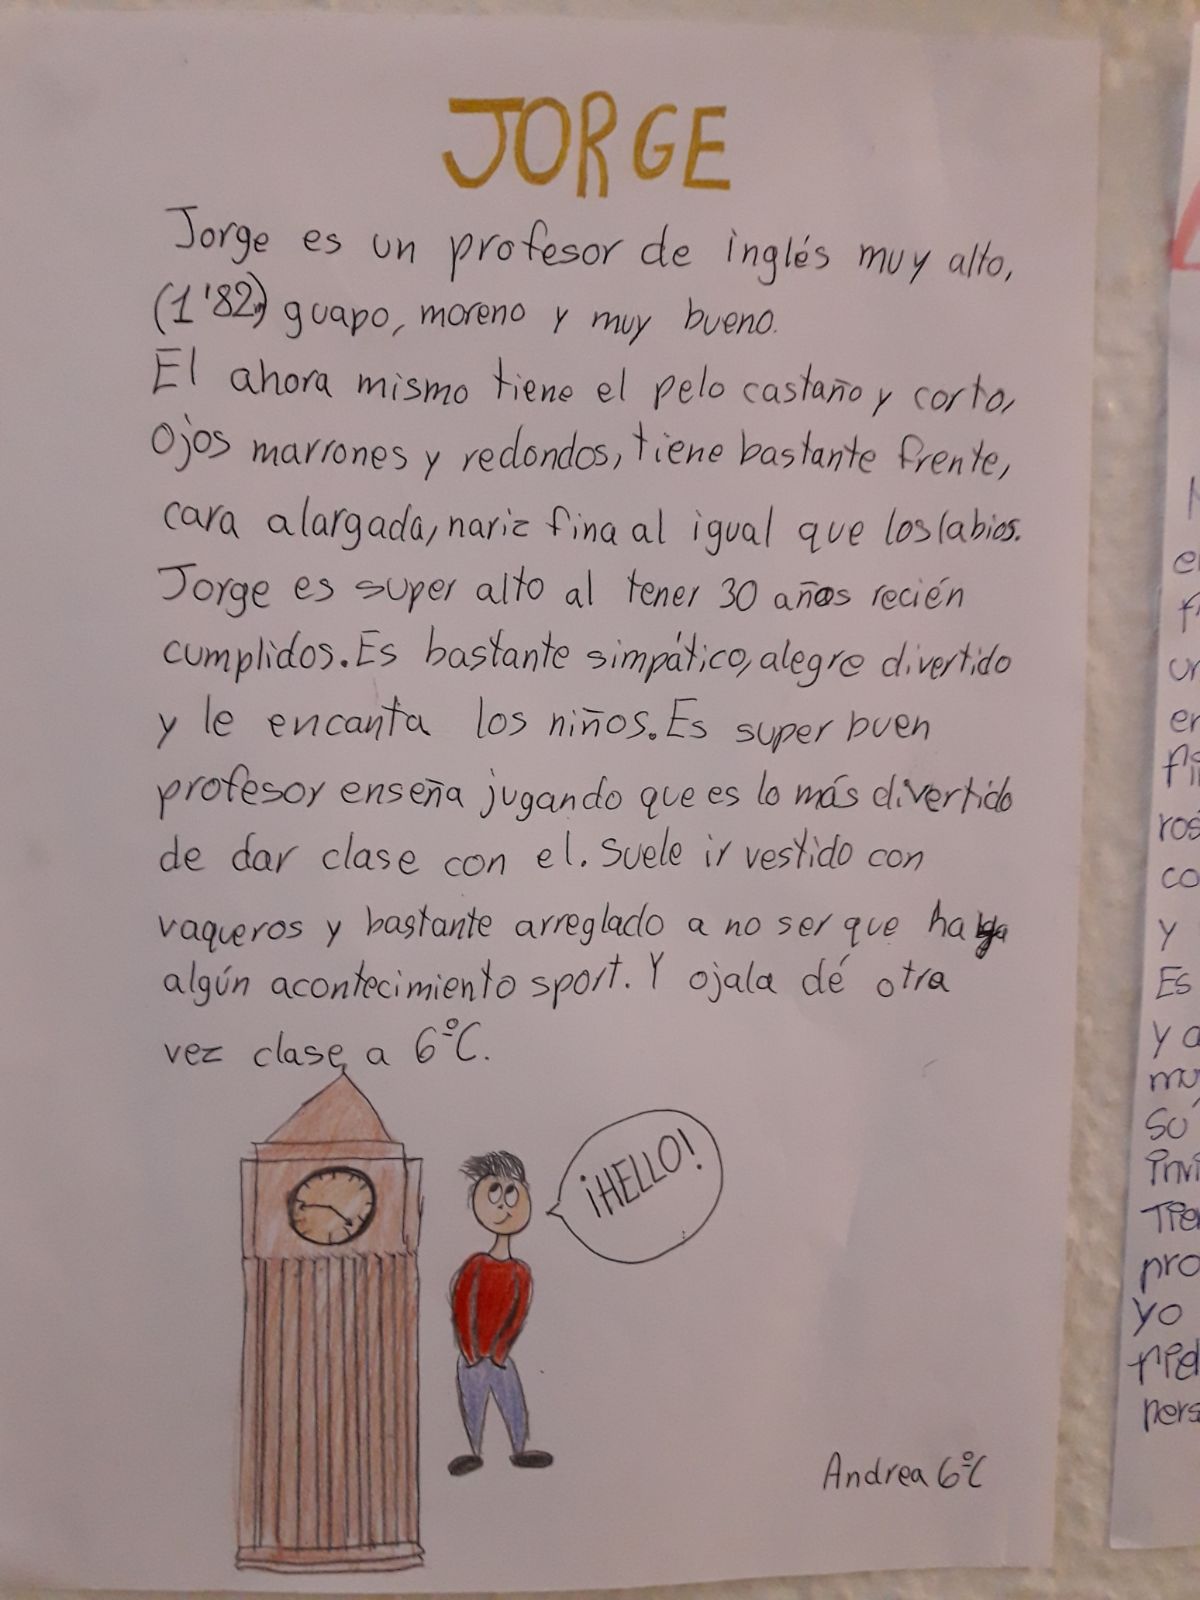 JORGE
Jorge es un profesor de inglés muy alto,
(1'82) guapo, moreno y muy bueno.
El ahora mismo tiene el pelo castaño y corto,
Ojos marrones y redondos, tiene bastante frente,
cara alargada, nariz fina al igual que los labios.
Jorge es super alto al tener 30 años recién
cumplidos. Es bastante simpático, alegre divertido
y le encanta los niños. Es super buen
profesor enseña jugando que es lo más divertido
de dar clase con el. Suele ir vestido con
vaqueros y bastante arreglado a no ser que haya
algún acontecimiento sport. Y ojala dé otra
vez clase a 6ºC.
¡HELLO!
Andrea 6ºC
fi
ros
co
y
Es
y a
mu
Su
invi
Tie
pro
yo
pers